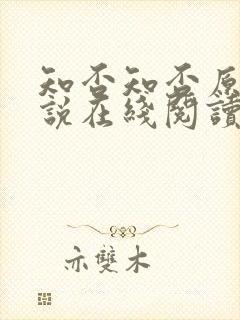 知否知否原
說在綫閱讀
亦雙木